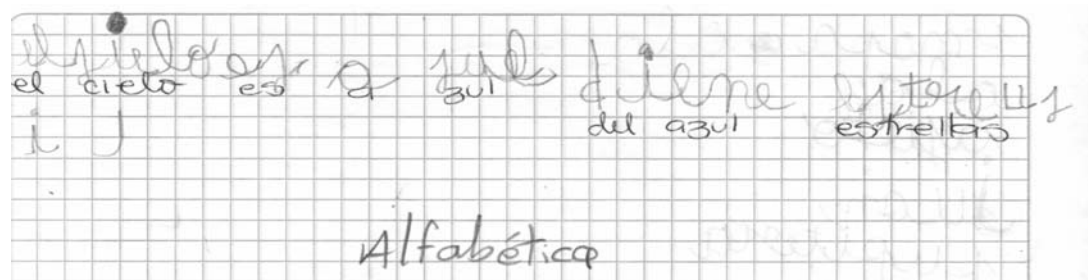 el sielo es a sul tiene estrellas
el cielo es a zul
i j del azul estrellas
Alfabética